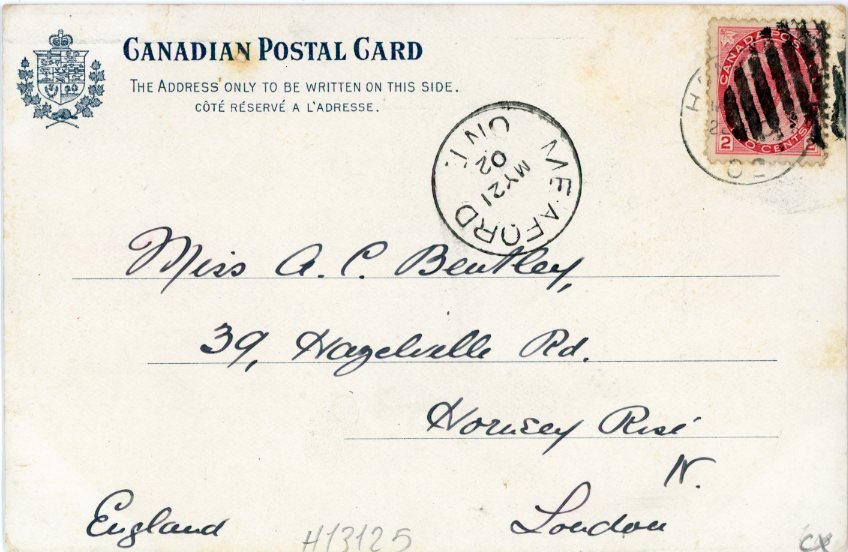 CANADIAN POSTAL CARD
THE ADDRESS ONLY TO BE WRITTEN ON THIS SIDE.
CÔTÉ RÉSERVÉ A L'ADRESSE.
CANADA
2 CENTS 2
02
MEAFORD
MY 21
02
ONT
Miss A. C. Bentley,
39, Hazelville Rd.
Hornsey Rise
N.
London
England
H13125
cx